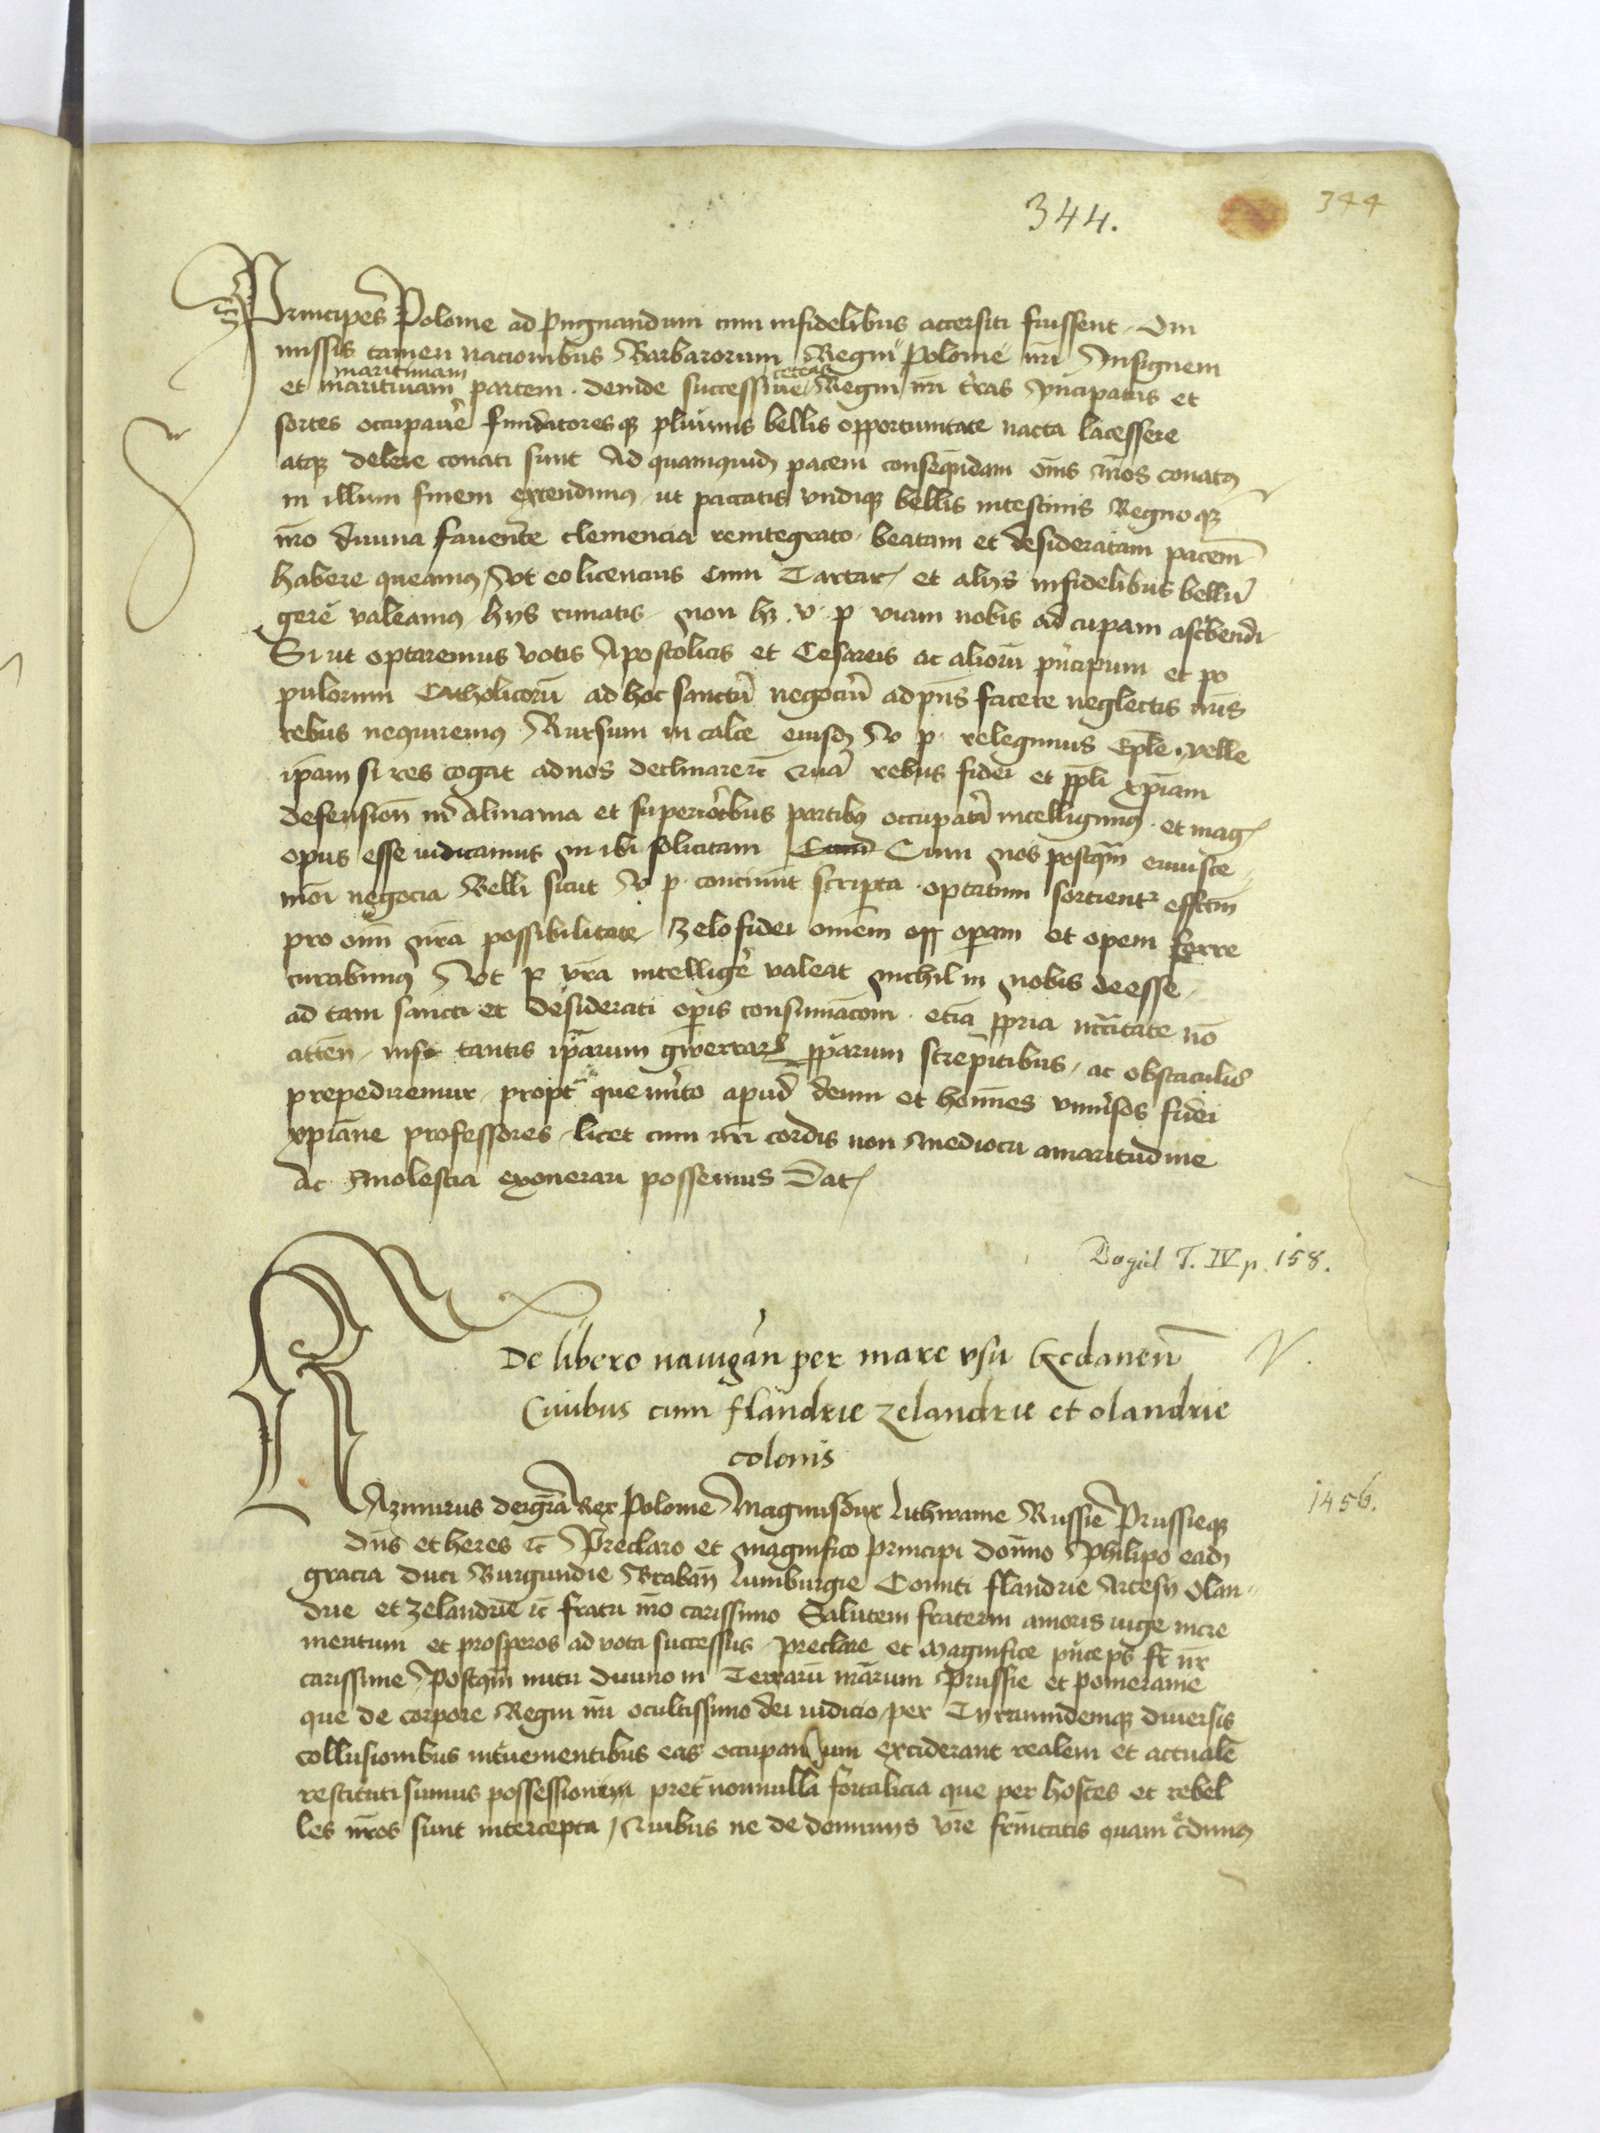 344.
344
Principes Polonie ad pugnandum cum infidelibus accersiti fuissent. Om
missis tamen nacionibus Barbarorum Regni Polonie nri Insignem
maritimam ceteras
et maritimam partem. deinde successive Regni nri terras principatus et
sortes occupavere fundatoresque plurimis bellis opportunitate nacta lacessere
atque delere conati sunt Ad quamquidem pacem consequendam omnes nros conatus
in illum finem extendimus ut pactatis undique bellis intestinis Regnoque
nro divina favente clemencia reintegrato beatam et desideratam pacem
habere queamus Ut eo licencius Cum Tartar et alijs infidelibus bellu
gere valeamus hijs ructatis non h v. p. viam nobis ad culpam ascribendi
Si ut optaremus votis Apostolicis et Cesareis ac aliorum principum et po
pulorum Catholicoru ad hoc sanctu negociu ad pns facere neglectis nris
rebus nequiremus Rursum in calce eiusdem V p. relegimus Eple velle
ipam si res cogat ad nos declinare etc Qua rebus fidei et ppli xpiani
defension in Almania et superioribus partibus occupata intelligimus et mag
opus esse iudicamus In ibi solicitam Cum nos postquam eiusce
modi negocia Belli sicut V p. continent scripta optatum sortientur effectum
pro omi nra possibilitate Zelo fidei omem opp operam et opem ferre
curabimus Ut p vra intelligere valeat Nichil in nobis deesse
ad tam sancti et desiderati operis consumacom. etia ppria neccitate no
atten nisi tantis ipsarum gwerrarum pprarum strepitibus, ac obstaculis
prepediremur propter que merito apud deum et homines universos fidei
xpiane professores licet cum nri cordis non mediocri amaritudine
Ac molestia exonerari possemus Dat
Dogiel T. IV p. 158.
De libero navigan per mare usu Gedanen V.
Civibus cum flandrie zelandrie et olandrie
colonis
1456.
Kazimirus dei gra Rex Polonie Magnus dux Lithwanie Russie Prussieque
dns et heres etc Preclaro et magnifico principi domno Philipo eadem
gracia duci Burgundie Braban Lumburgie Comiti flandrie Artesij Olan
drie et Zelandrie etc fratri nro carissimo Salutem fraterni amoris iuge incre
mentum et prosperos ad vota successus preclare et Magnifice princeps fr nr
carissime Postquam nutu divino in Terrarum nrarum Prussie et Pomeranie
que de corpore Regni nri ocultissimo dei iudicio per Tyrannidemque diversis
collusionibus intervenientibus eas occupancium exciderant realem et actuale
restituti sumus possessionem preter nonnulla fortalicia que per hostes et rebel
les nros sunt intercepta, Quibus ne de dominijs vre frnitatis quam credimus